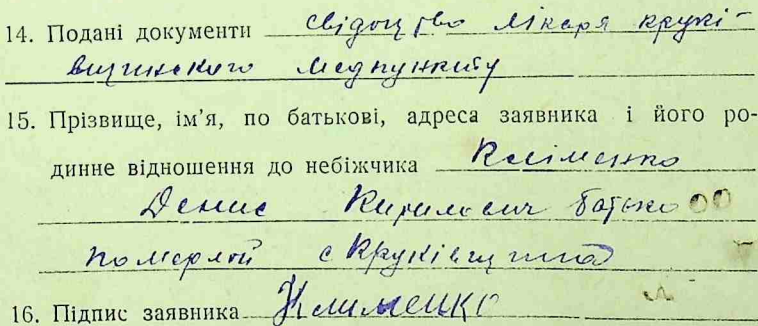 14. Подані документи свідоцтво лікаря крукі-
вщинского медпункиту
15. Прізвище, ім'я, по батькові, адреса заявника і його ро-
динне відношення до небіжчика Кліменко
Денис Кирилович батько
померлой с Круківщина
16. Підпис заявника Клименко